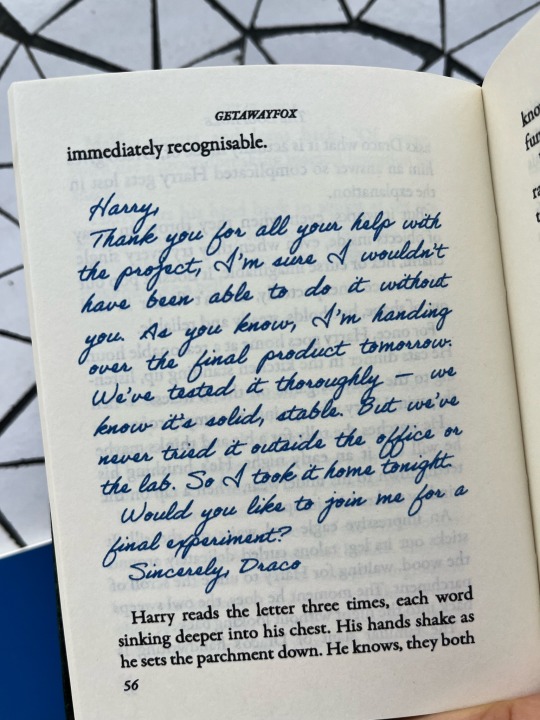 GETAWAYFOX
immediately recognisable.
Harry,
Thank you for all your help with
the project, I'm sure I wouldn't
have been able to do it without
you. As you know, I'm handing
over the final product tomorrow.
We've tested it thoroughly — we
know it's solid, stable. But we've
never tried it outside the office or
the lab. So I took it home tonight.
Would you like to join me for a
final experiment?
Sincerely, Draco
Harry reads the letter three times, each word
sinking deeper into his chest. His hands shake as
he sets the parchment down. He knows, they both
56